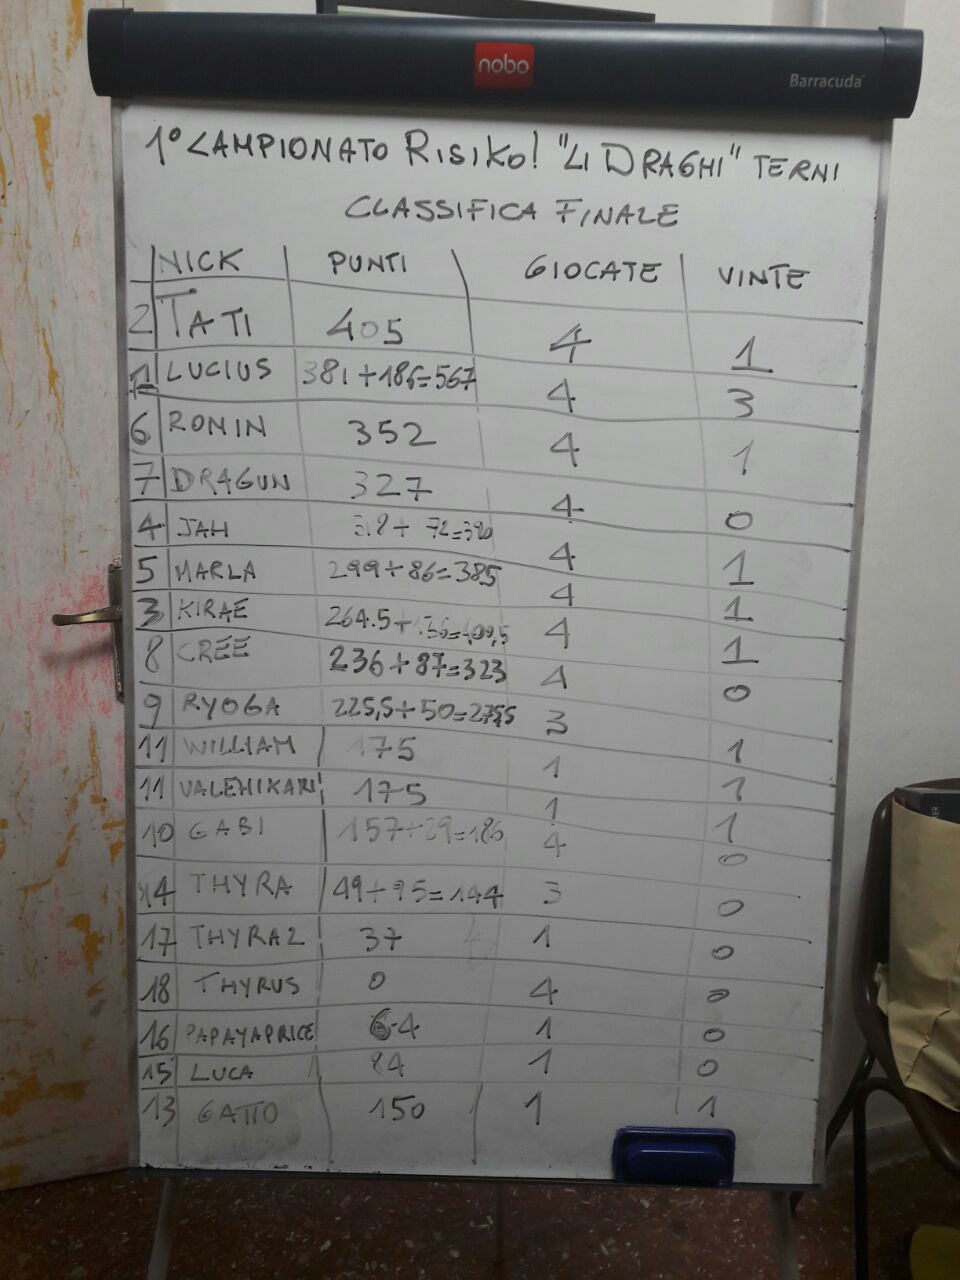 nobo
Barracuda
1° CAMPIONATO RISIKO! "LI DRAGHI" TERNI
CLASSIFICA FINALE
NICK PUNTI GIOCATE VINTE
2 TATI 405 4 1
1 LUCIUS 381+186=567 4 3
6 RONIN 352 4 1
7 DRAGUN 327 4 0
4 JAH 4 1
5 MARLA 299+86=385 4 1
3 KIRAE 4 1
8 CREE 236+87=323 4 0
9 RYOGA 225,5+50=275,5 3 1
11 WILLIAM 175 1 1
11 VALEHIKARI 175 1 1
10 GABI 157+29=186 4 0
14 THYRA 49+95=144 3 0
17 THYRA2 37 1 0
18 THYRUS 0 4 0
16 PAPAYAPRICE 64 1 0
15 LUCA 84 1 0
13 GATTO 150 1 1